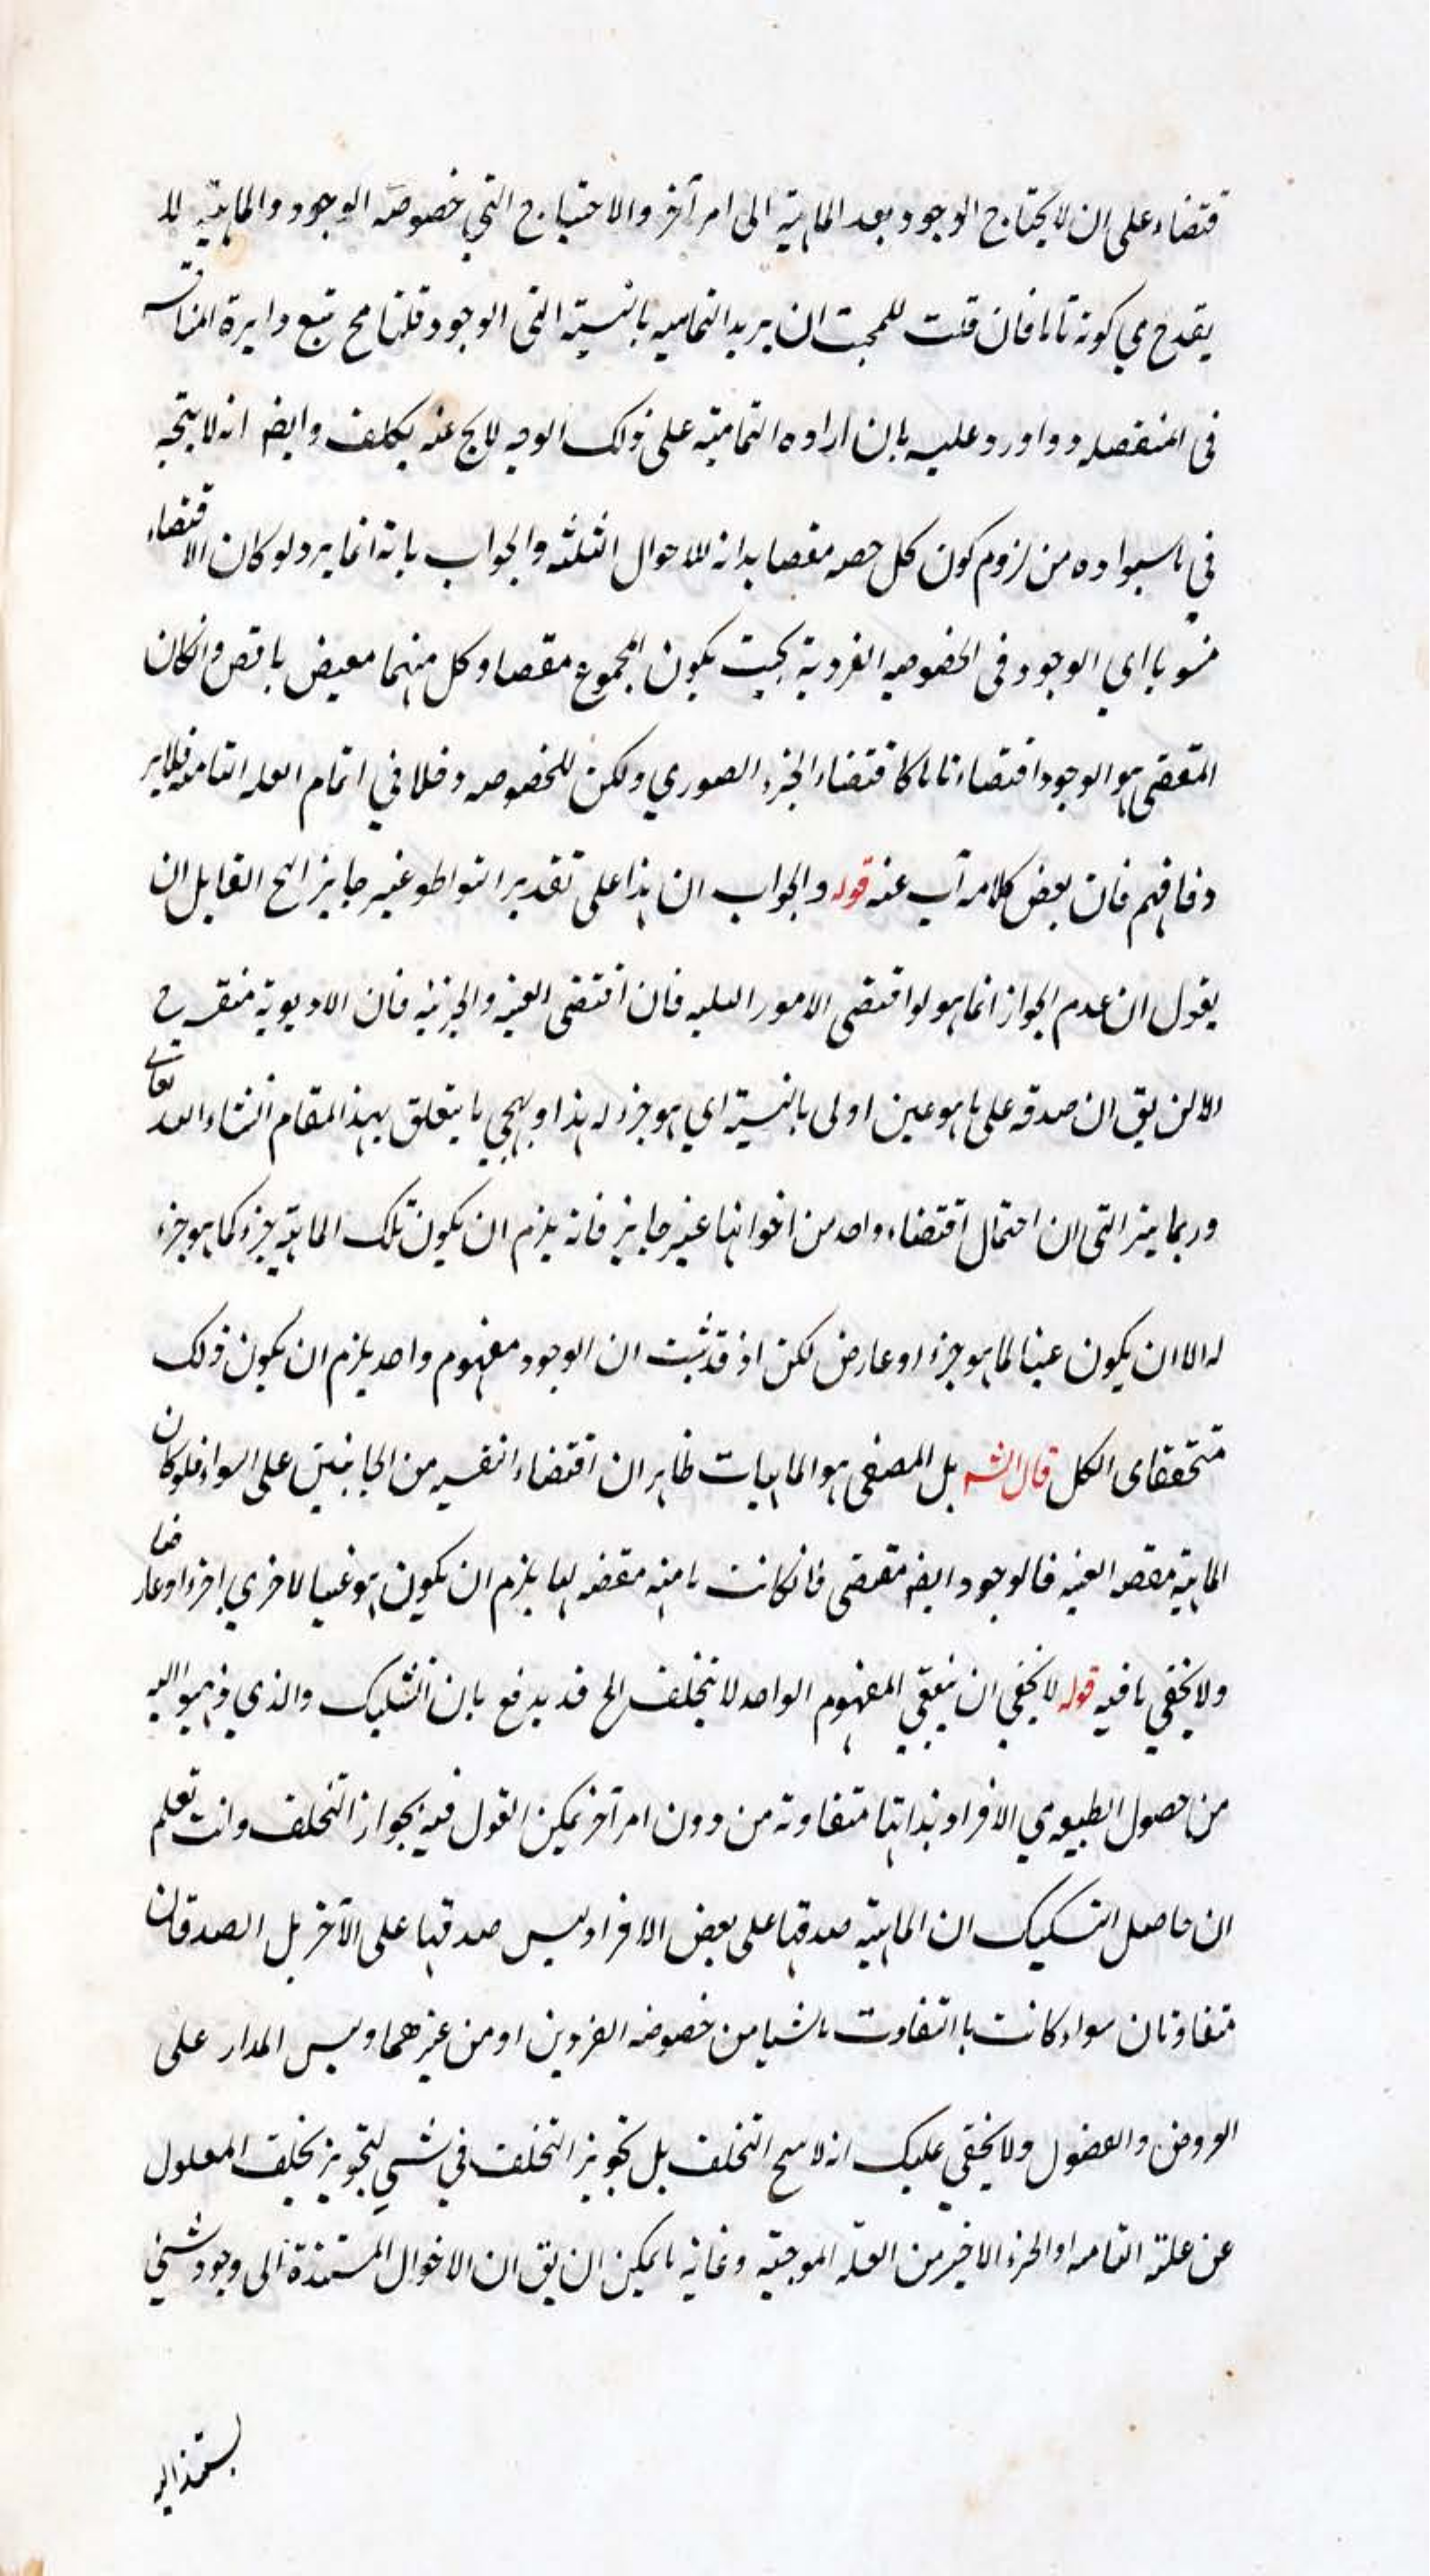 قتضاء على ان لا يحتاج الوجود بعد الماهية الى امر آخر والاحتياج التي خصوصه الوجود والماهية لا
يقدح في كونه تاما فان قلت للمجيب ان يريد التمامية بالنسبة الى الوجود قلنا مح تتبع دايرة المناقشه
في المنفصله واورد عليه بان اراده التمامية على ذلك الوجه لا يخ عنه تكلف وايض انه لا يتجه
في ما سيواده من لزوم كون كل حصه مقصا بدانه للاحوال الثلثه والجواب بانه انما يرد لو كان الاقتضاء
منسوبا اي الوجود في الخصوصيه الفردية بحيث يكون المجموع مقصا وكل منهما معيض ناقص وان كان
المقتضى هو الوجود اقتضاء تاما كاقتضاء الجزء الصوري ولكن للخصوصه دخلا في اتمام العله التامه فلا ير
د فافهم فان بعض كلامه آب عنه قوله والجواب ان هذا على تقدير التواطو غير جايز الخ القايل ان
يقول ان عدم الجواز انما هو لو اقتضى الامور الثلثه فان اقتضى العينه والجزئيه فان الاولوية متفرع
الا لن يق ان صدقه على ما هو عين اولى بالنسبة اي هو جزء له هذا وسيجي ما يتعلق بهذا المقام انشاء الله تعالى
وربما ينبر التى ان احتمال اقتضاء واحد من اخواتها غير جايز فانه يلزم ان يكون تلك الماهية جزء كما هو جزء
له الا ان يكون عينا لما هو جزء او عارض لكن اذ قد ثبت ان الوجود مفهوم واحد يلزم ان يكون ذلك
متحققا اى الكل قال الش بل المصفى هو الماهيات ظاهر ان اقتضاء النفسيه من الجانبين على السواء فلو كان
الماهية مقصه العينه فالوجود ايض مقتضى فان كانت ماهيه مقضه لها يلزم ان يكون هو عينا لاخرى اجزء او عارضا
ولا يخفى ما فيه قوله لا يخفى ان مقتضى المفهوم الواحد لا يتخلف الخ قد يدفع بان التشكيك والذي ذهبوا اليه
من حصول الطبيعه في الافراد بذاتها متفاوته من دون امر آخر يمكن القول فيه بجواز التخلف وانت تعلم
ان حاصل التشكيك ان الماهية صدقها على بعض الافراد ليس صدقها على الآخر بل الصدقان
متفاوتان سواء كانت با التفاوت ناشيا من خصوصه الفردين او من غيرهما وليس المدار على
العروض والفضول ولا يخفى عليك انه لا يصح التخلف بل تجويز التخلف في شي لتجويز تخلف المعلول
عن علته التامه او الجزء الاخير من العلة الموجبة وغاية ما يمكن ان يق ان الاحوال المستندة الى وجود شي
يستند اليه